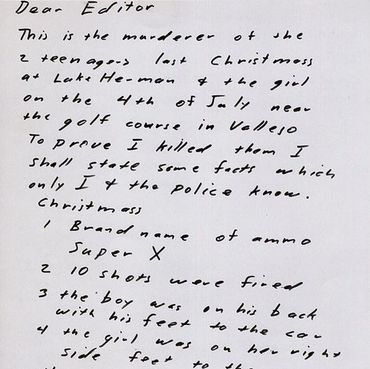 Dear Editor
This is the murderer of the
2 teenagers last Christmass
at Lake Herman & the girl
on the 4th of July near
the golf course in Vallejo
To prove I killed them I
shall state some facts which
only I & the police know.
Christmass
1 Brand name of ammo
Super X
2 10 shots were fired
3 the boy was on his back
with his feet to the car
4 the girl was on her right
side feet to the